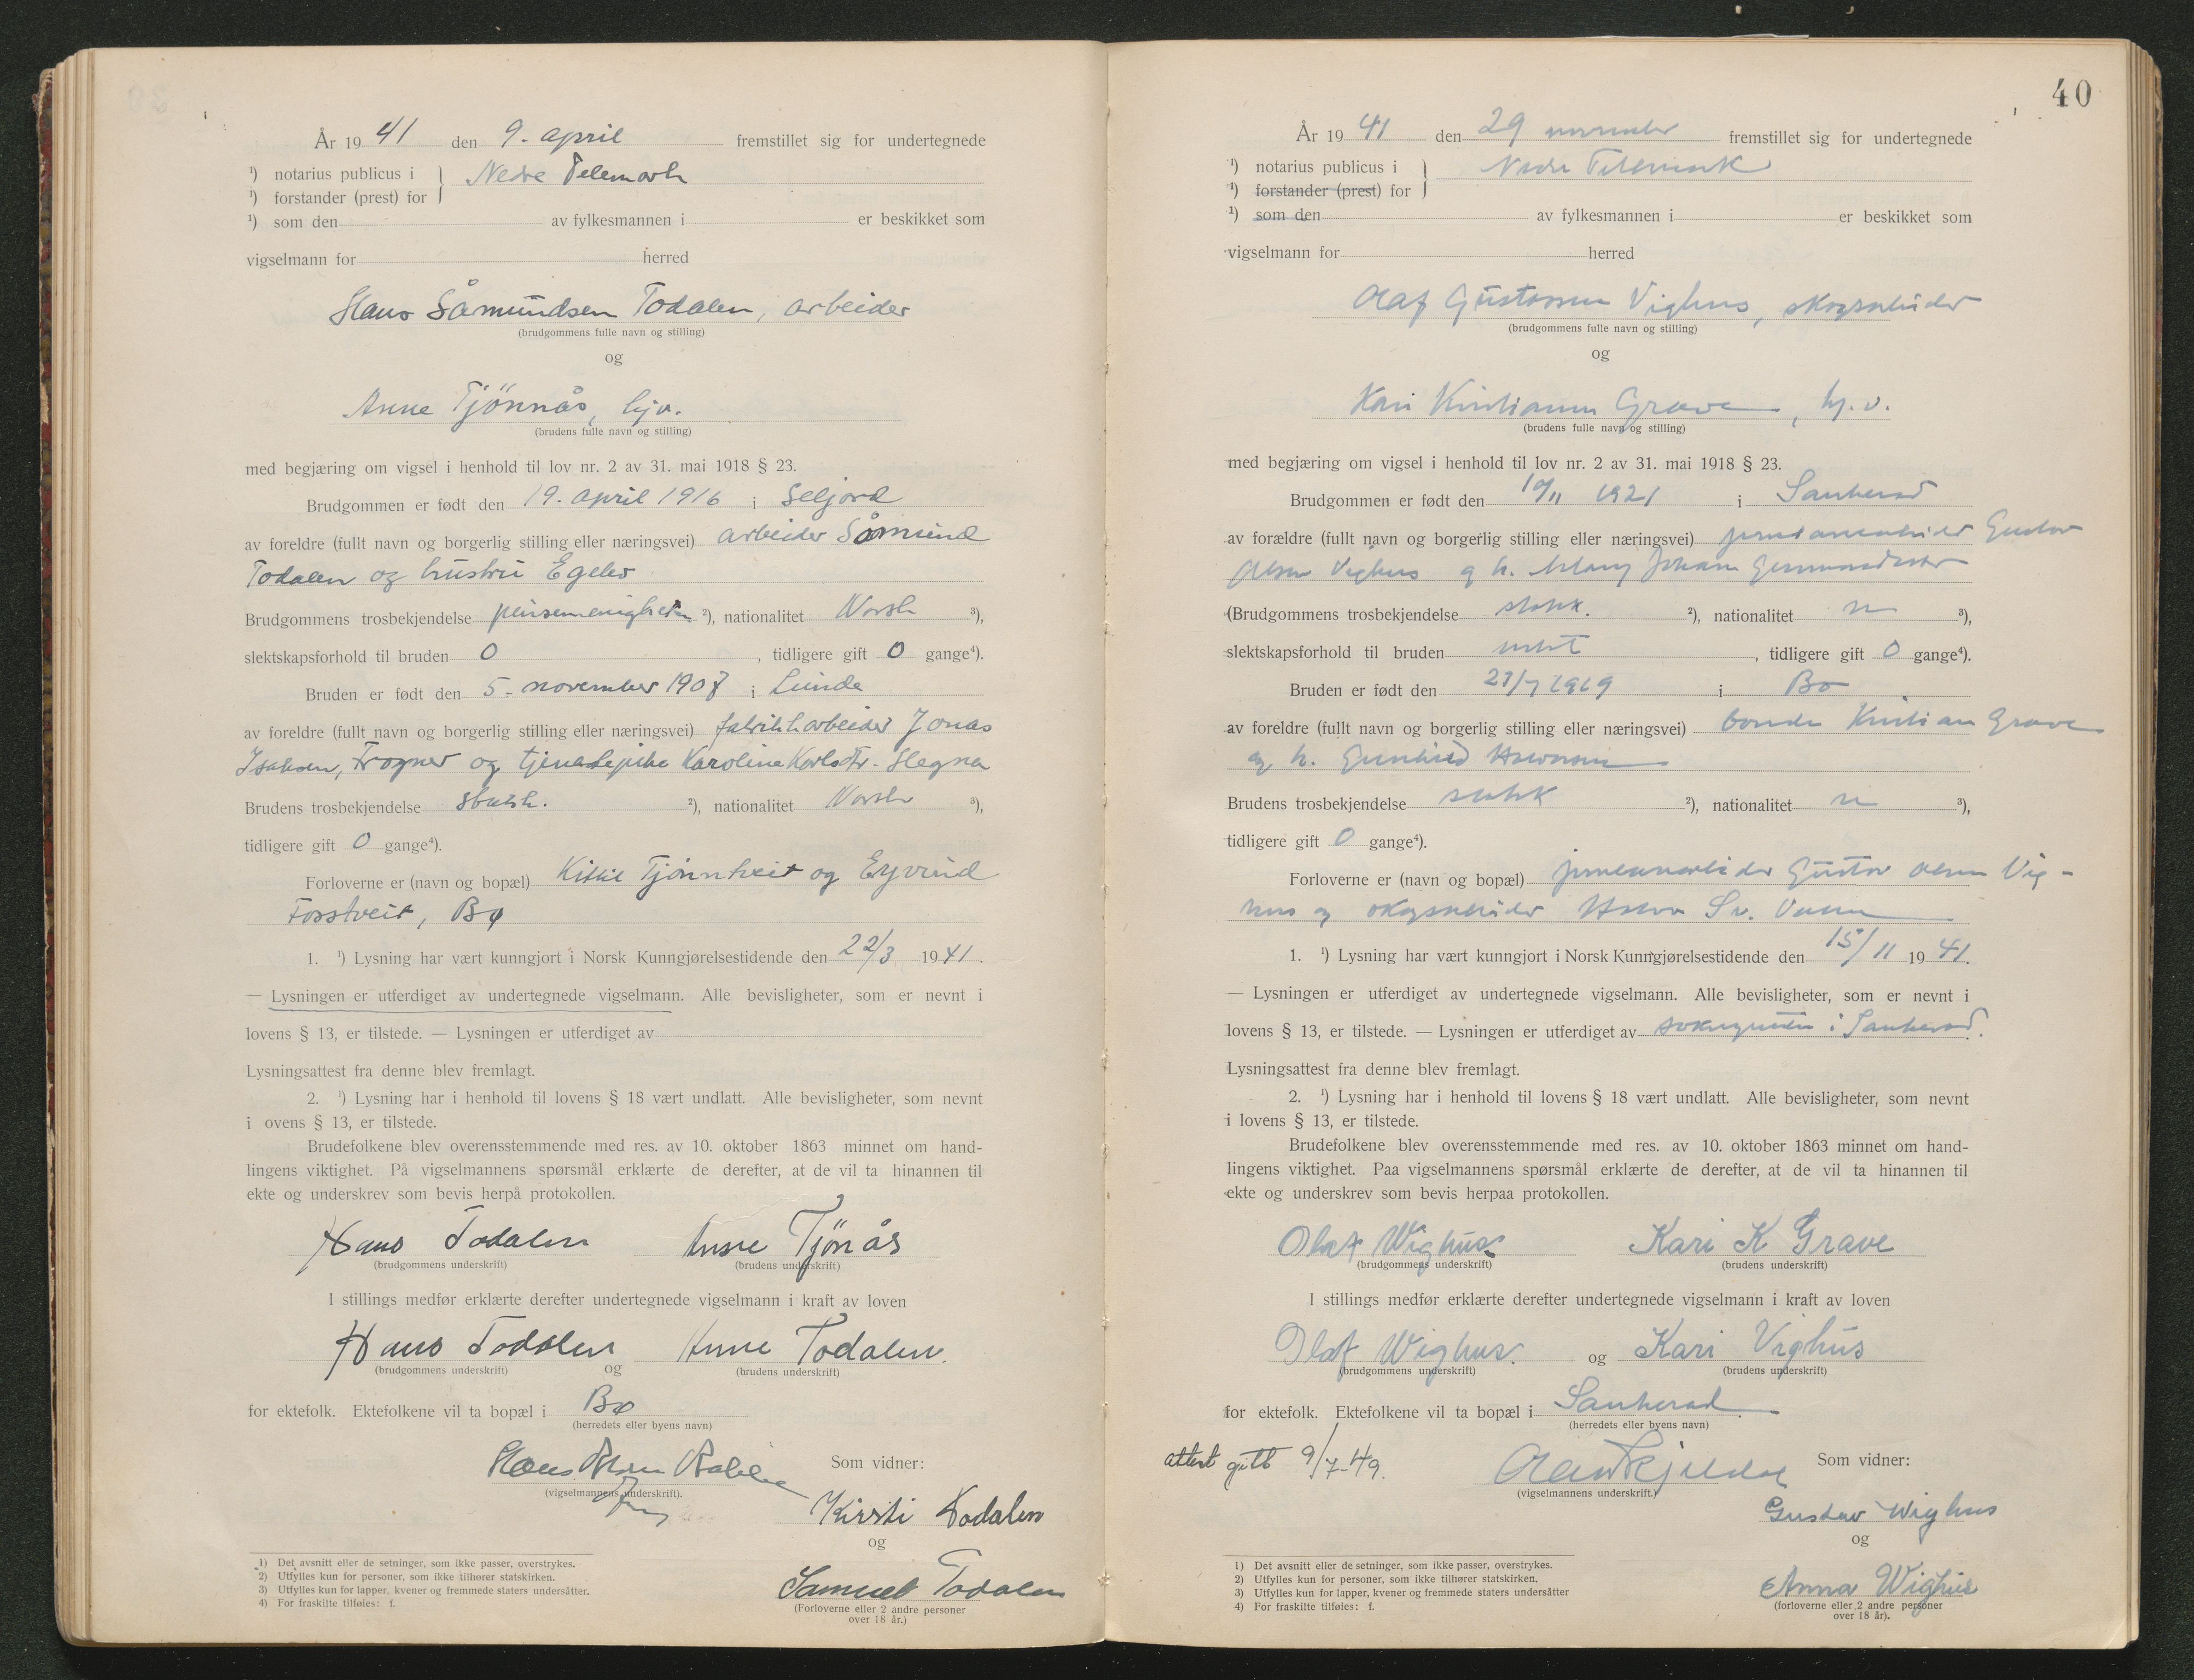 År 19 41 den 9. april fremstillet sig for undertegnede
¹) notarius publicus i } Nedre Telemark
¹) forstander (prest) for
¹) som den av fylkesmannen i er beskikket som
vigselmann for herred
Hans Såmundsen Todalen, arbeider
(brudgommens fulle navn og stilling)
og
Anne Tjönnås, hjv.
(brudens fulle navn og stilling)
med begjæring om vigsel i henhold til lov nr. 2 av 31. mai 1918 § 23.
Brudgommen er født den 19. april 1916 i Seljord
av foreldre (fullt navn og borgerlig stilling eller næringsvei) arbeider Såmund
Todalen og hustru Egelev
Brudgommens trosbekjendelse pinsemenigheten ²), nationalitet Norsk ³),
slektskapsforhold til bruden 0, tidligere gift 0 gange⁴).
Bruden er født den 5. november 1907 i Lunde
av foreldre (fullt navn og borgerlig stilling eller næringsvei) fabrikkarbeider Jonas
Isaksen, Frogner og tjenestepike Karoline Karlsdtr. Hegna
Brudens trosbekjendelse statsk. ²), nationalitet Norsk ³),
tidligere gift 0 gange⁴).
Forloverne er (navn og bopæl) Kittil Tjönnheit og Eyvind
Fosstveit, Bø
1. ¹) Lysning har vært kunngjort i Norsk Kunngjørelsestidende den 22/3 1941.
— Lysningen er utferdiget av undertegnede vigselmann. Alle bevisligheter, som er nevnt i
lovens § 13, er tilstede. — Lysningen er utferdiget av
Lysningsattest fra denne blev fremlagt.
2. ¹) Lysning har i henhold til lovens § 18 vært undlatt. Alle bevisligheter, som nevnt
i ovens § 13, er tilstede.
Brudefolkene blev overensstemmende med res. av 10. oktober 1863 minnet om hand-
lingens viktighet. På vigselmannens spørsmål erklærte de derefter, at de vil ta hinannen til
ekte og underskrev som bevis herpå protokollen.
Hans Todalen Anne Tjönås
(brudgommens underskrift) (brudens underskrift)
I stillings medfør erklærte derefter undertegnede vigselmann i kraft av loven
Hans Todalen og Anne Todalen.
(brudgommens underskrift) (brudens underskrift)
for ektefolk. Ektefolkene vil ta bopæl i Bø
(herredets eller byens navn)
Hans
(vigselmannens underskrift).
Som vidner:
Kirsti Todalen
og
Samuel Todalen
(Forloverne eller 2 andre personer
over 18 år.)
1) Det avsnitt eller de setninger, som ikke passer, overstrykes.
2) Utfylles kun for personer, som ikke tilhører statskirken.
3) Utfylles kun for lapper, kvener og fremmede staters undersåtter.
4) For fraskilte tilføies: f.
40
År 19 41 den 29 november fremstillet sig for undertegnede
¹) notarius publicus i } Nedre Telemark
¹) forstander (prest) for
¹) som den av fylkesmannen i er beskikket som
vigselmann for herred
Olaf Gustavsen Vighus, skogsarbeider
(brudgommens fulle navn og stilling)
og
Kari Kristiansen Grave, hj.v.
(brudens fulle navn og stilling)
med begjæring om vigsel i henhold til lov nr. 2 av 31. mai 1918 § 23.
Brudgommen er født den 19/11 1921 i Sauherad
av forældre (fullt navn og borgerlig stilling eller næringsvei) jernbanearbeider Gustav
Olsen Vighus og h. Johanne
(Brudgommens trosbekjendelse statsk. ²), nationalitet n ³),
slektskapsforhold til bruden intet, tidligere gift 0 gange⁴).
Bruden er født den 27/7 1919 i Bø
av foreldre (fullt navn og borgerlig stilling eller næringsvei) bonde Kristian Grave
og h. Gunhild
Brudens trosbekjendelse statsk ²), nationalitet n ³),
tidligere gift 0 gange⁴).
Forloverne er (navn og bopæl) jernbanearbeider Gustav Olsen Vig-
hus og skogsarbeider Sv.
1. ¹) Lysning har vært kunngjort i Norsk Kunngjørelsestidende den 15/11 1941.
— Lysningen er utferdiget av undertegnede vigselmann. Alle bevisligheter, som er nevnt i
lovens § 13, er tilstede. — Lysningen er utferdiget av soknepresten i Sauherad.
Lysningsattest fra denne blev fremlagt.
2. ¹) Lysning har i henhold til lovens § 18 vært undlatt. Alle bevisligheter, som nevnt
i lovens § 13, er tilstede.
Brudefolkene blev overensstemmende med res. av 10. oktober 1863 minnet om hand-
lingens viktighet. Paa vigselmannens spørsmål erklærte de derefter, at de vil ta hinannen til
ekte og underskrev som bevis herpaa protokollen.
Olaf Wighus Kari K Grave
(brudgommens underskrift) (brudens underskrift)
I stillings medfør erklærte derefter undertegnede vigselmann i kraft av loven
Olaf Wighus. og Kari Vighus
(brudgommens underskrift) (brudens underskrift)
for ektefolk. Ektefolkene vil ta bopæl i Sauherad
(herredets eller byens navn)
attest gitt 9/7-49.
(vigselmannens underskrift.)
Som vidner:
Gustav Wighus
og
Anna Wighus
(forloverne eller 2 andre personer
over 18 år).
1) Det avsnitt eller de setninger, som ikke passer, overstrykes.
2) Utfylles kun for personer, som ikke tilhører statskirken.
3) Utfylles kun for lapper, kvener og fremmede staters undersåtter
4) For fraskilte tilføies: f.